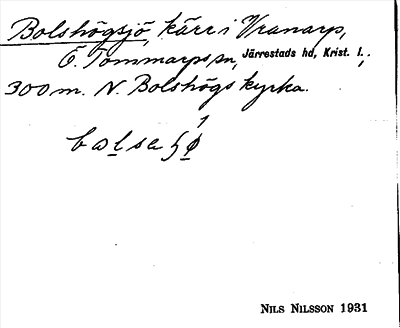 Bolshögsjö, kärr i Vranarp,
Ö. Tommarps sn, Järrestads hd, Krist. l.;
300 m. N. Bolshögs kyrka.
NILS NILSSON 1931